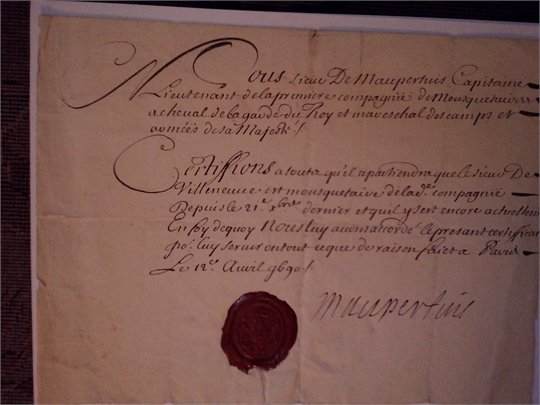 Nous Sieur De Maupertuis Capitaine
Lieutenant de la premiere compagnie de Mousquetaires
a cheval de la garde du Roy et mareschal des camps et
armées de sa Majesté
Certiffions a toutz qu'il apartiendra que le Sieur De
Villeneuve est mousquetaire de lad.e compagnie
Depuis le 21.e xbre dernier et quil y sert encore actuellem
En foy de quoy Nous luy avons accordé le presant certificat
po.r luy servir en tout ce que de raison fait a Paris
Le 12.e Avril 1690
Maupertuis